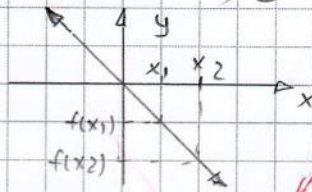 y
x₁ x₂
x
f(x₁)
f(x2)